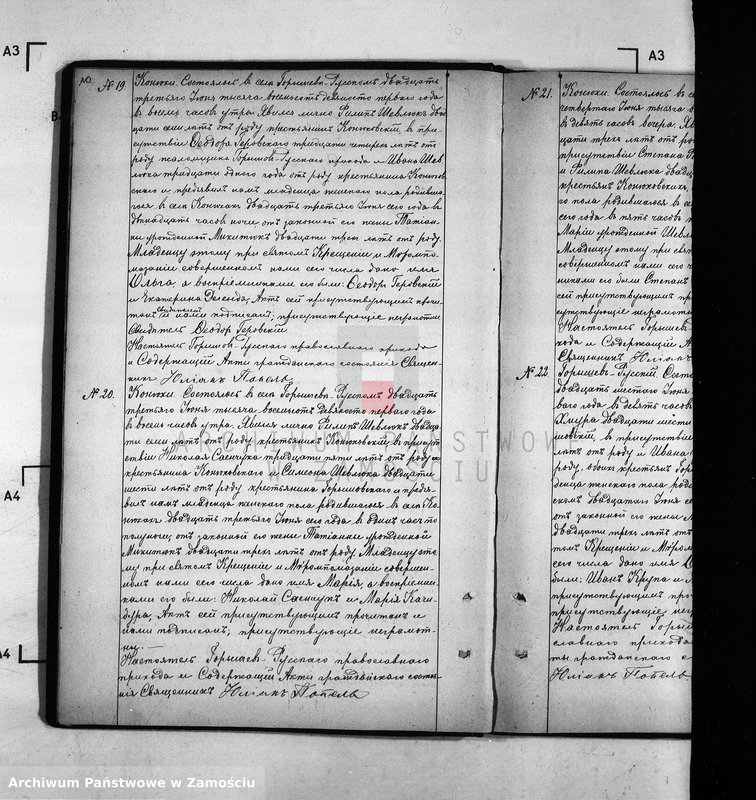 A3
A3
10.
№ 19
Конюхи. Состоялось въ селѣ Горышевѣ-Русскомъ двадцать
третьяго Іюня тысяча восемьсотъ девяносто перваго года
въ восемь часовъ утра. Явился лично Филипъ Шевлюкъ двад
цати семи лѣтъ отъ роду крестьянинъ Конюховскій, въ при-
сутствіи Ѳеодора Геровскаго тридцати четырехъ лѣтъ отъ
роду псаломщика Горышов-Русскаго прихода и Ивана Шев
люка тридцати одного года отъ роду крестьянина Конюхов
скаго и предъявилъ намъ младенца женскаго пола родивша-
гося въ селѣ Конюхахъ двадцать третьяго Іюня сего года въ
двѣнадцать часовъ ночи отъ законной его жены Татіан-
ны урожденной Микитюкъ двадцати трехъ лѣтъ отъ роду.
Младенцу этому при святомъ Крещеніи и Мѵропо-
мазаніи совершенномъ нами сего числа дано имя
Ольга, а воспріемниками его были: Ѳеодор Геровскій
и Екатерина Актъ сей присутствующимъ прочи-
танъ и нами подписанъ; присутствующіе неграмотны
Свидѣтель Ѳеодор Геровскій
Настоятель Горышов-Русскаго православнаго прихода
и Содержащій Акты гражданскаго состоянія Священ-
никъ Юліанъ Попель
№ 20.
Конюхи. Состоялось въ селѣ Горышевѣ-Русскомъ двадцать
третьяго Іюня тысяча восемьсотъ девяносто перваго года
въ восемь часовъ утра. Явился лично Филипъ Шевлюкъ двадца
ти семи лѣтъ отъ роду крестьянинъ Конюховскій, въ присут
ствіи Николая Савчука тридцати пяти лѣтъ отъ роду
крестьянина Конюховскаго и Симеона Шевлюка двадцати
шести лѣтъ отъ роду крестьянина Горышовскаго и предъя-
вилъ намъ младенца женскаго пола родившагося въ селѣ Ко-
нюхахъ двадцать третьяго Іюня сего года въ одинъ часъ по
полуночи отъ законной его жены Татіанны урожденной
Микитюкъ двадцати трехъ лѣтъ отъ роду. Младенцу это-
му при святомъ Крещеніи и Мѵропомазаніи совершен-
номъ нами сего числа дано имя Марія, а воспріемни-
ками его были: Николай Савчукъ и Марія
Актъ сей присутствующимъ прочитанъ и
нами подписанъ; присутствующіе неграмот-
ны. —
Настоятель Горышев-Русскаго православнаго
прихода и Содержащій Акты гражданскаго состоя-
нія Священникъ Юліанъ Попель
A4
A4
№ 21.
Конюхи. Состоялось въ се
четвертаго Іюня тысяча в
въ девять часовъ вечера. Яв
цати трехъ лѣтъ отъ ро
присутствіи Степана
и Филипа Шевлюка двадца
крестьянъ Конюховскихъ,
го пола родившагося въ
сего года въ пять часовъ
Маріи урожденной Шевлю
Младенцу этому при свя
совершенномъ нами сего ч
ками его были Степанъ
сей присутствующимъ пр
ствующіе неграмотны
Настоятель Горышев-
хода и Содержащій А
Священникъ Юліанъ
№ 22.
Горышевъ-Русскій Состо
двадцать шестаго Іюня
ваго года въ девять часовъ
Хмура двадцати шести
шовскій, въ присутствіи
лѣтъ отъ роду и Ивана
роду, обоихъ крестьянъ Горы
денца женскаго пола роди
скомъ двадцатаго Іюня
отъ законной его жены
двадцати трехъ лѣтъ о
томъ Крещеніи и Мѵропом
сего числа дано имя
были: Иванъ Крупа и
присутствующимъ про
присутствующіе негр
Настоятель Горыш
славнаго прихода
ты гражданскаго с
Юліанъ Попель
ARCHIWUM PAŃSTWOWE
W ZAMOŚCIU
Archiwum Państwowe w Zamościu